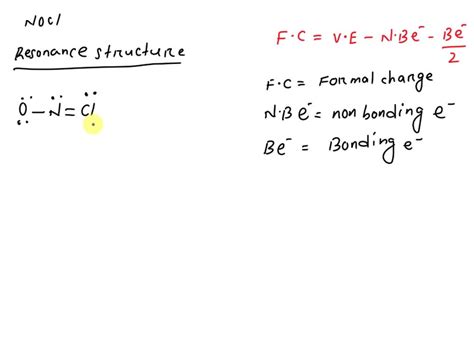 NOCl
Resonance structure
F.C = V.E - N.Be⁻ - Be⁻/2
F.C = Formal charge
Ö - N = Cl
N.B e⁻ = non bonding e⁻
Be⁻ = Bonding e⁻